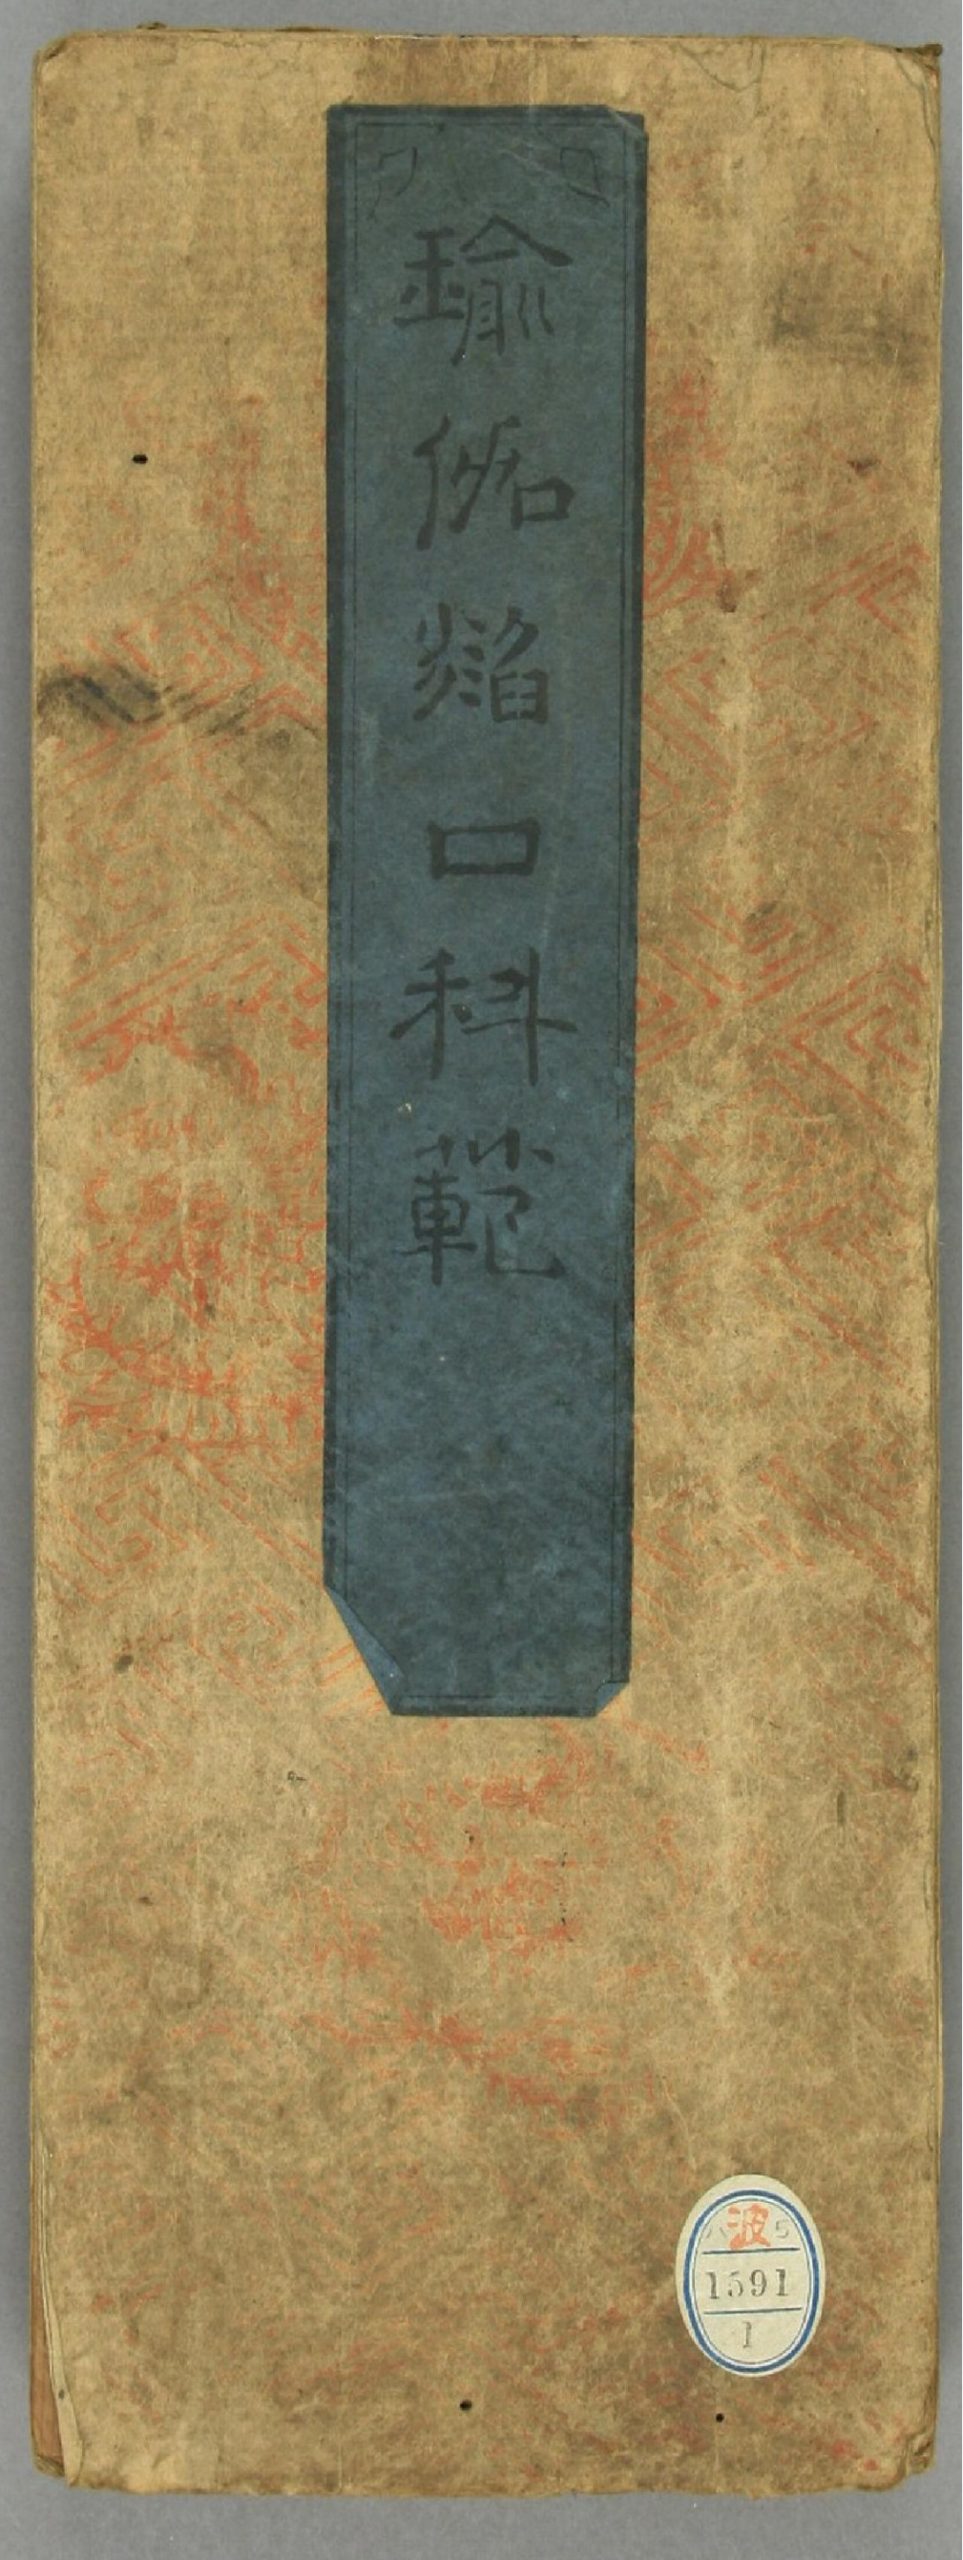 瑜伽燄口科範
波
1591
1